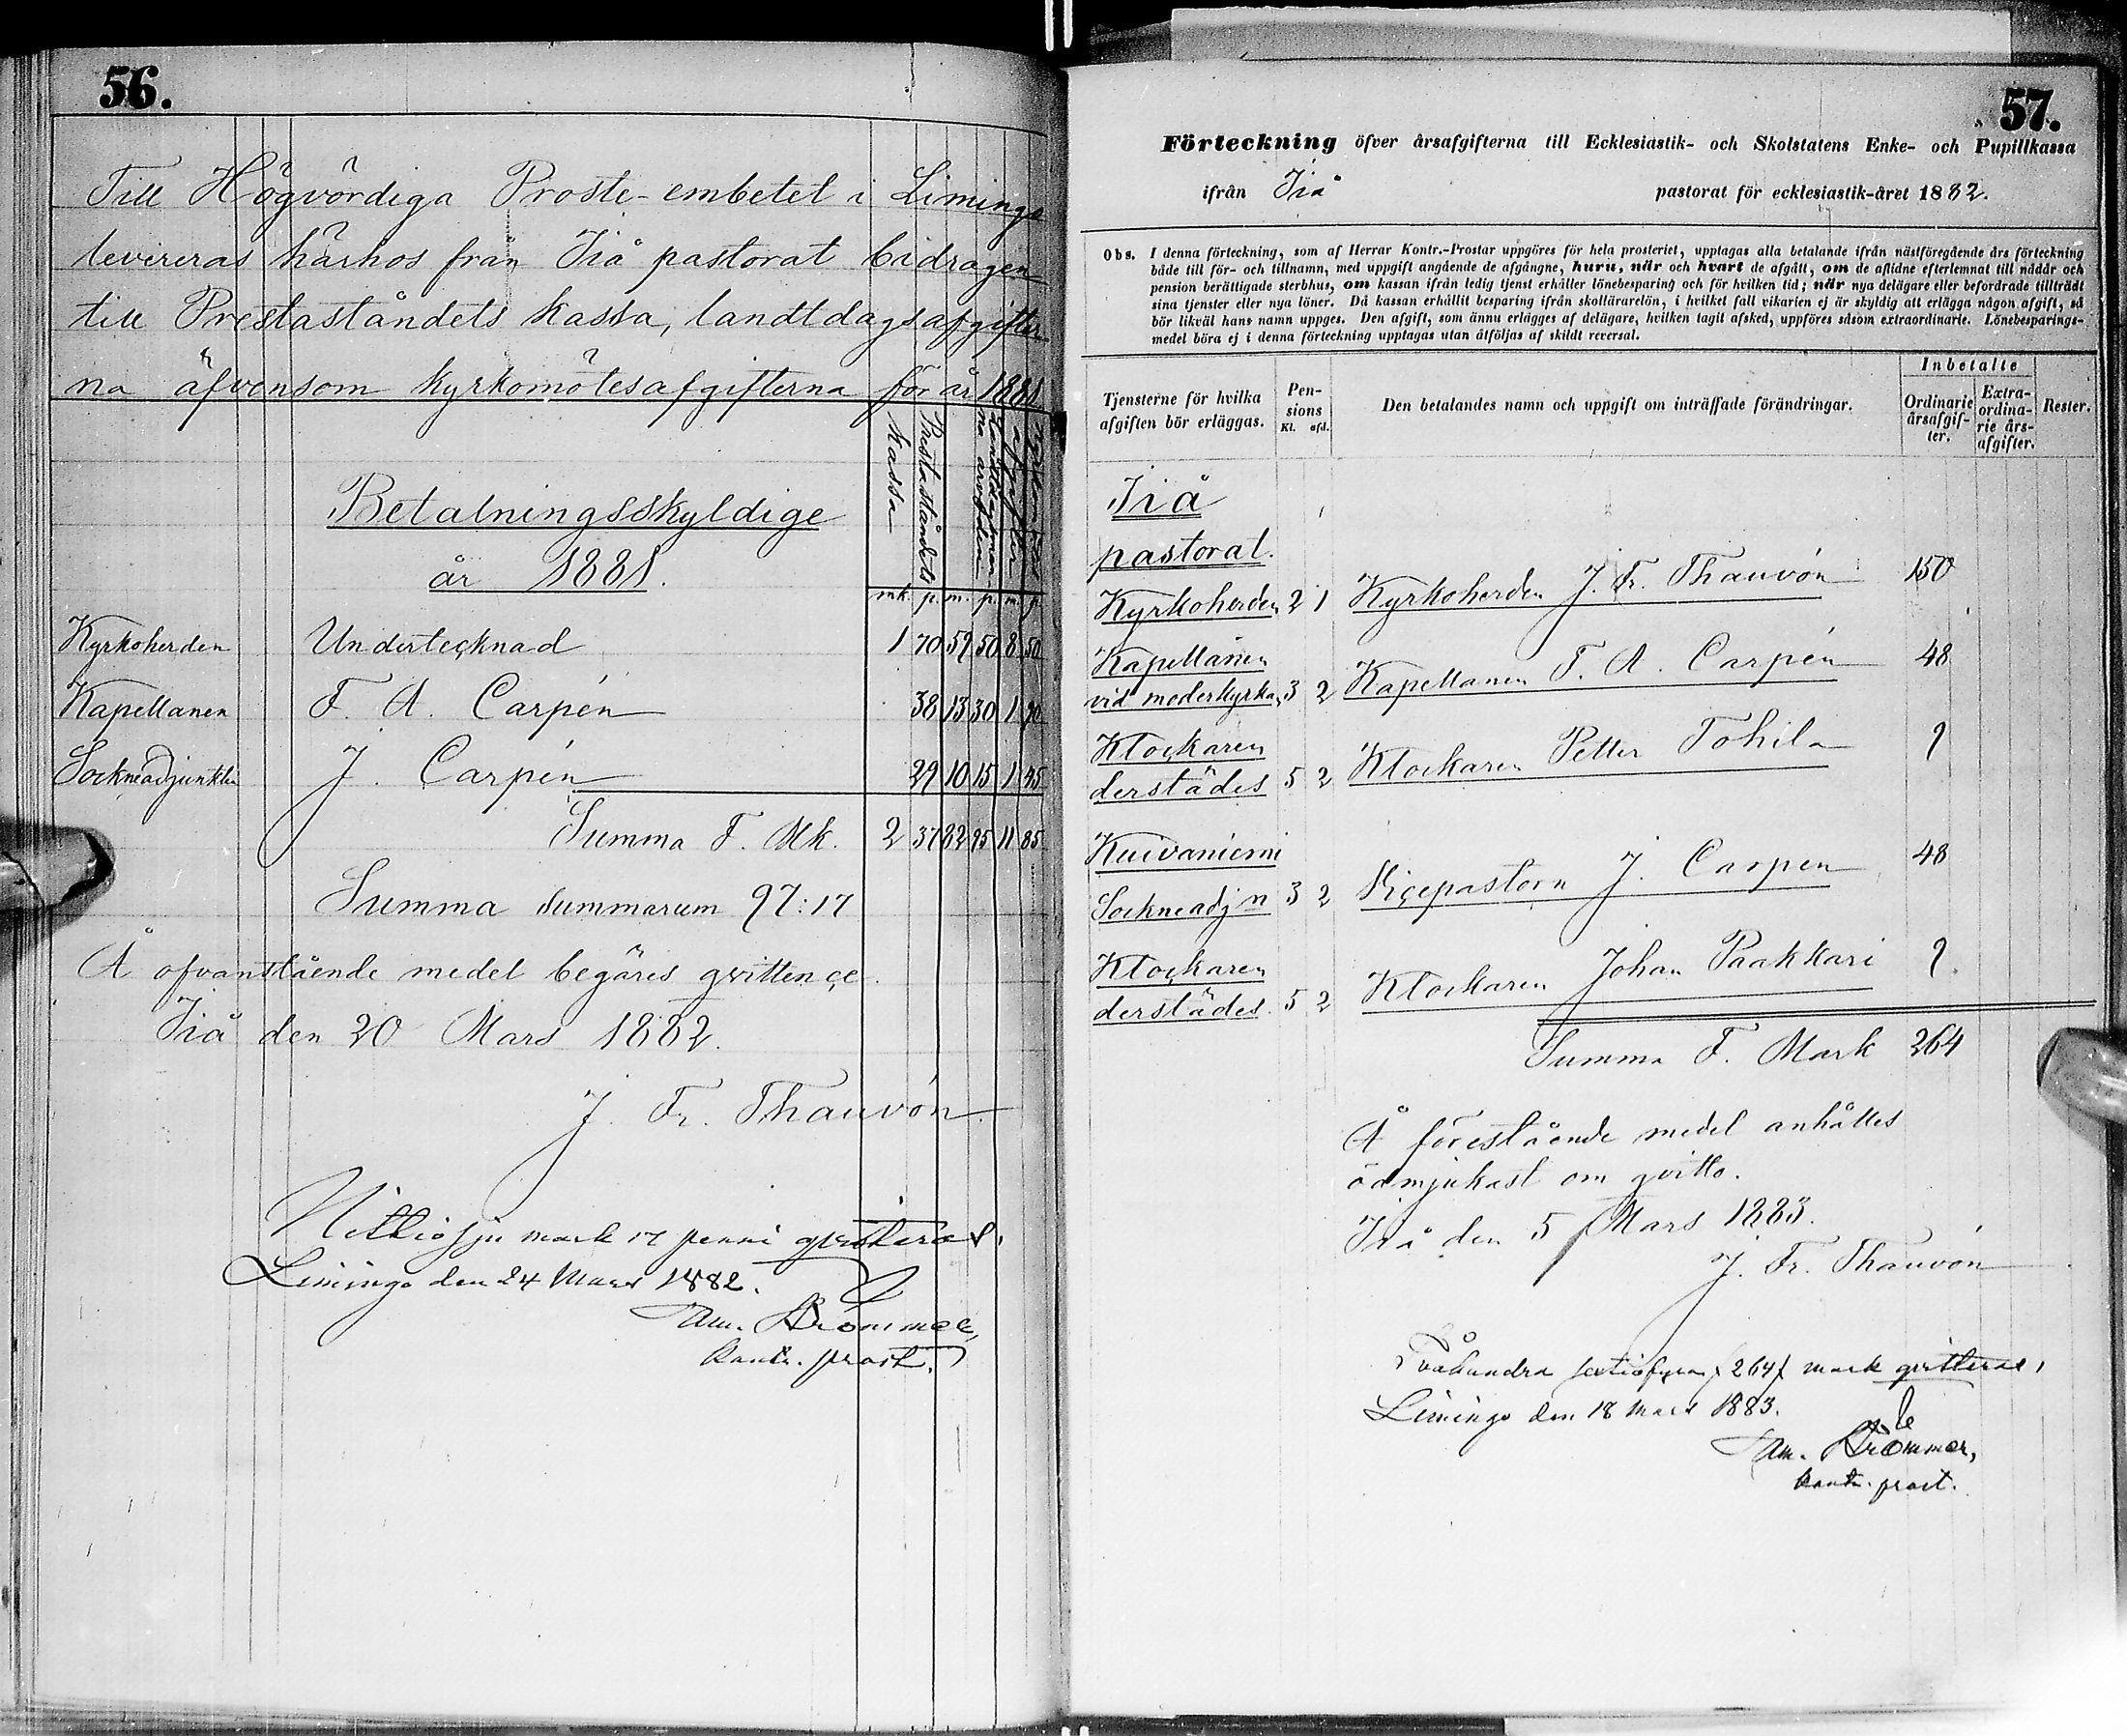 56.
Till Högvördiga Proste-embetet i Limingo
levereras härhos från Iiå pastorat bidragen
till Prestaståndets kassa, landtdagsafgifter-
na äfvensom kyrkomötesafgifterna för år 1881
Betalningsskyldige
år 1881.
Prestaståndets
kassa
mk. p. m. p. m. p.
Kyrkoherden Undertecknad 1 70 59 50 8 50
Kapellanen F. A. Carpén 38 13 30 1 90
Sockneadjunkten J. Carpén 29 10 15 1 45
Summa F. Mk. 2 37 82 95 11 85
Summa summarum 97:17
Å ofvanstående medel begäres qvittence.
Iiå den 20 Mars 1882.
J. Fr. Thauvón
Nittiosju mark 17 penni qvitteras.
Limingo den 24 Mars 1882.
Brommer,
kontr. prost.
57.
Förteckning öfver årsafgifterna till Ecklesiastik- och Skolstatens Enke- och Pupillkassa
ifrån Iiå pastorat för ecklesiastik-året 1882.
Obs. I denna förteckning, som af Herrar Kontr.-Prostar uppgöres för hela prosteriet, upptagas alla betalande ifrån nästföregående års förteckning
både till för- och tillnamn, med uppgift angående de afgångne, huru, när och hvart de afgått, om de aflidne efterlemnat till nådår och
pension berättigade sterbhus, om kassan ifrån ledig tjenst erhåller lönebesparing och för hvilken tid; när nya delägare eller befordrade tillträdt
sina tjenster eller nya löner. Då kassan erhållit besparing ifrån skollärarelön, i hvilket fall vikarien ej är skyldig att erlägga någon afgift, så
bör likväl hans namn uppges. Den afgift, som ännu erlägges af delägare, hvilken tagit afsked, uppföres såsom extraordinarie. Lönebesparings-
medel böra ej i denna förteckning upptagas utan åtföljas af skildt reversal.
Tjensterne för hvilka
afgiften bör erläggas.
Pen-
sions
Kl. afd.
Den betalandes namn och uppgift om inträffade förändringar.
Inbetalte
Ordinarie
årsafgif-
ter.
Extra-
ordina-
rie års-
afgifter.
Rester.
Iiå
pastorat.
Kyrkoherden 2 1 Kyrkoherden J. Fr. Thauvón 150
Kapellanen
vid moderkyrkan 3 2 Kapellanen F. A. Carpén 48
Klockaren
derstädes 5 2 Klockaren Petter Tohila 9
Kuivaniemi
Sockneadjn 3 2 Vicepastorn J. Carpen 48
Klockaren
derstädes. 5 2 Klockaren Johan Paakkari 9.
Summa F. Mark 264
Å förestående medel anhålles
ödmjukast om qvitto.
Iiå den 5 Mars 1883.
J. Fr. Thauvón
Tvåhundra sextiofyra (264) mark qvitteras,
Limingo den 18 Mars 1883.
Brommer,
kontr. prost.